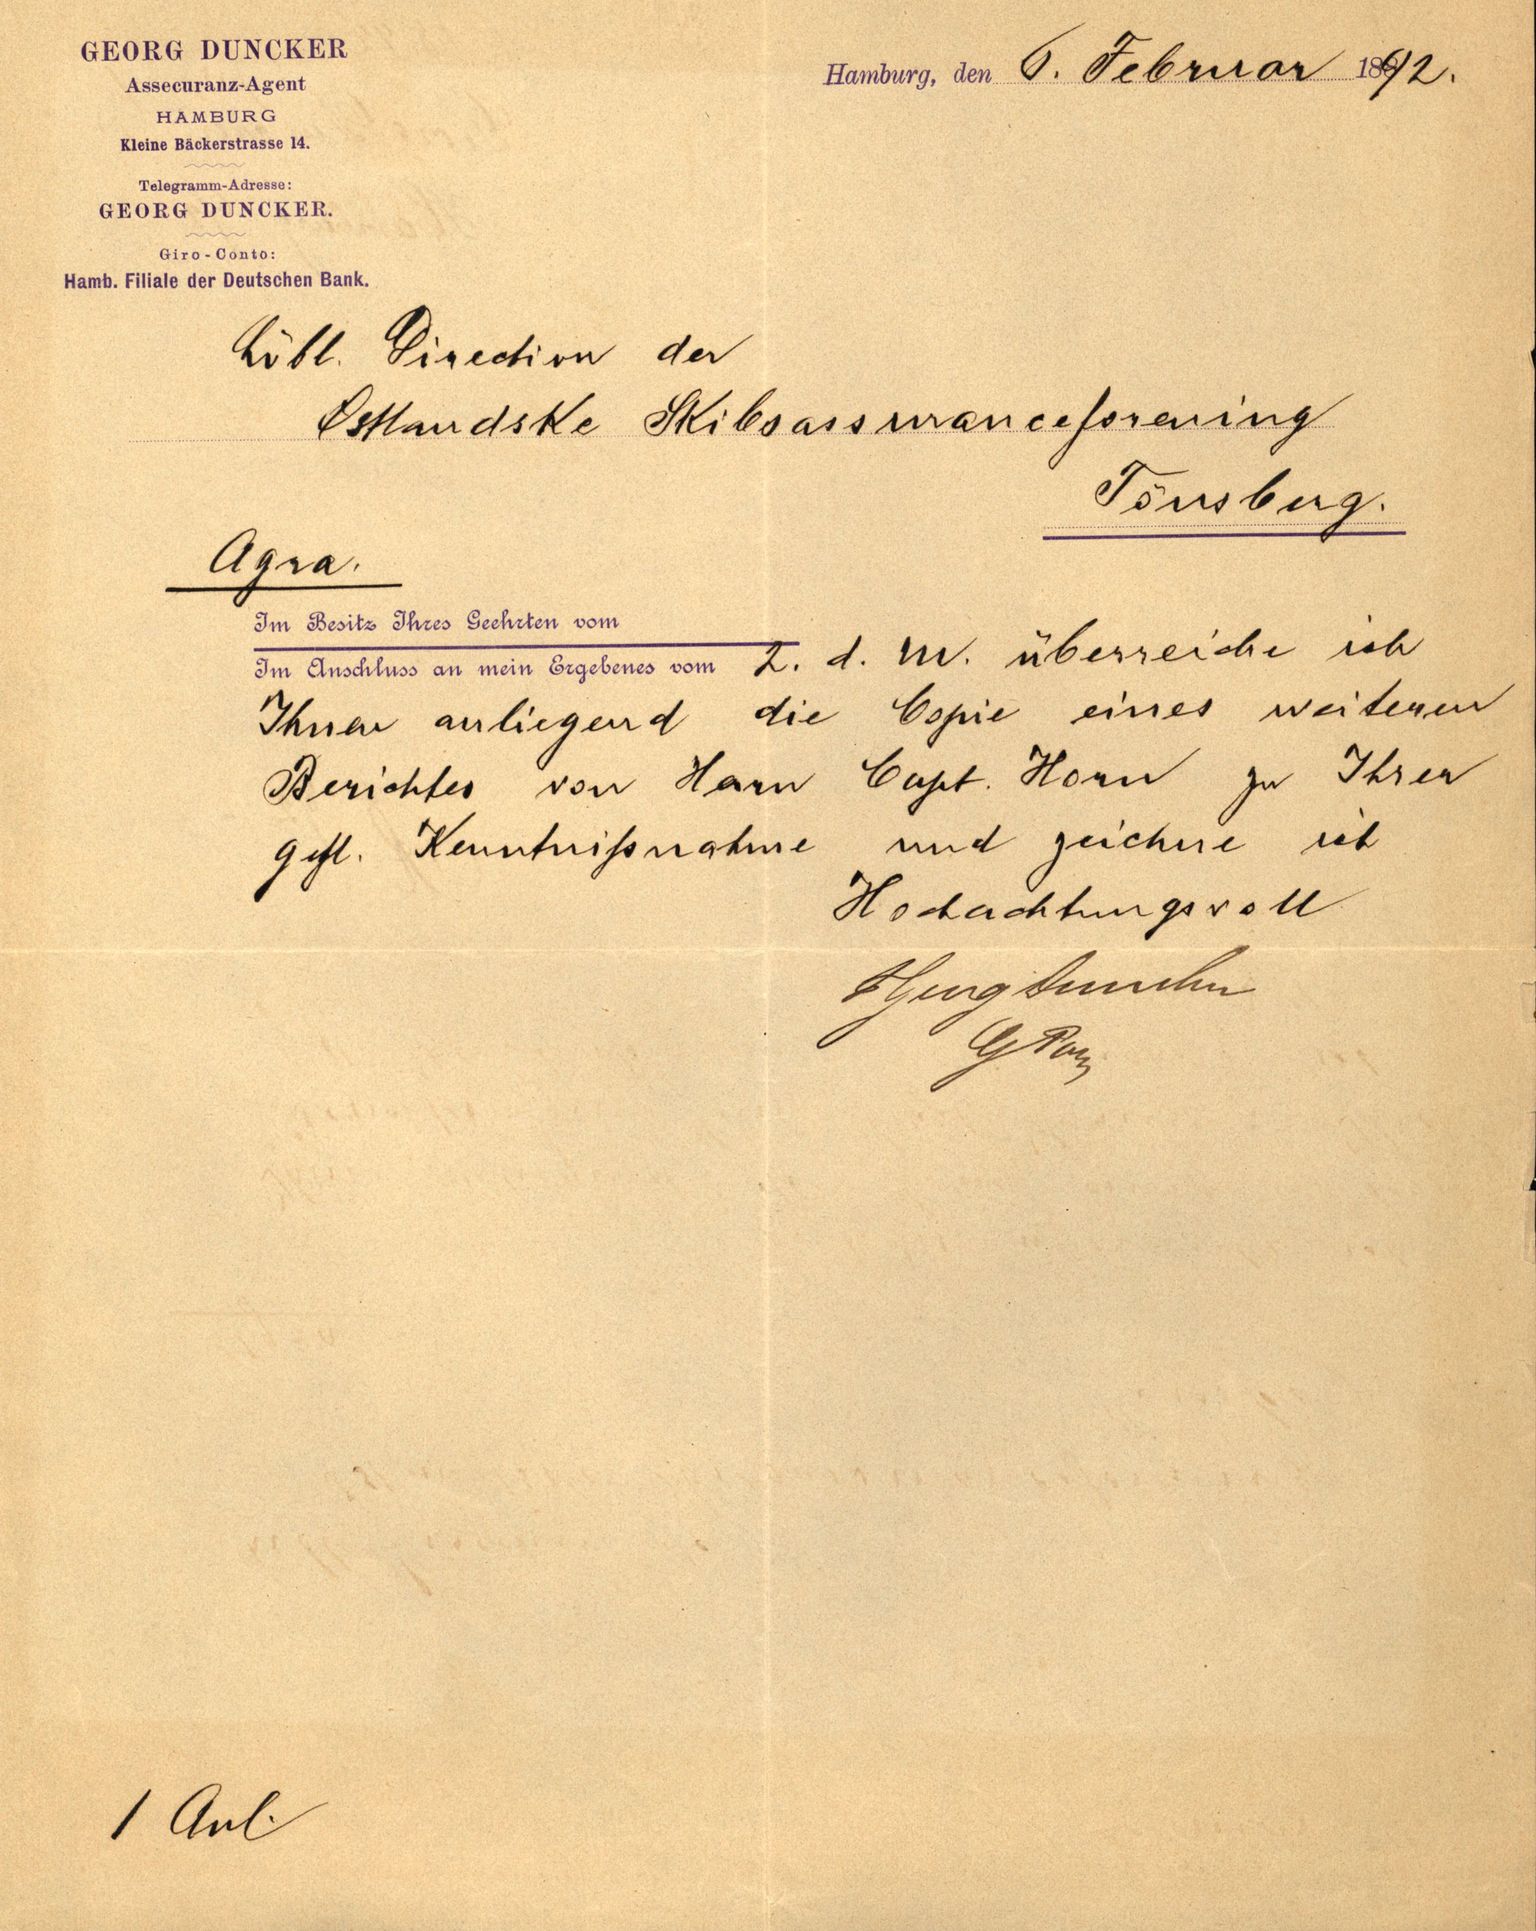 GEORG DUNCKER
Assecuranz-Agent
HAMBURG
Kleine Bäckerstrasse 14.
Telegramm-Adresse:
GEORG DUNCKER.
Giro-Conto:
Hamb. Filiale der Deutschen Bank.
Hamburg, den 6. Februar 1892.
Löbl. Direction der
Ostlandske Skibsassuranceforening
Tönsberg.
Agra.
Im Besitz Ihres Geehrten vom
Im Anschluss an mein Ergebenes vom 2. d. M. überreiche ich
Ihnen anliegend die Copie eines weiteren
Berichtes von Herrn Capt. Horn zu Ihrer
gefl. Kenntnißnahme und zeichne ich
Hochachtungsvoll
Georg Duncker
1 Anl.